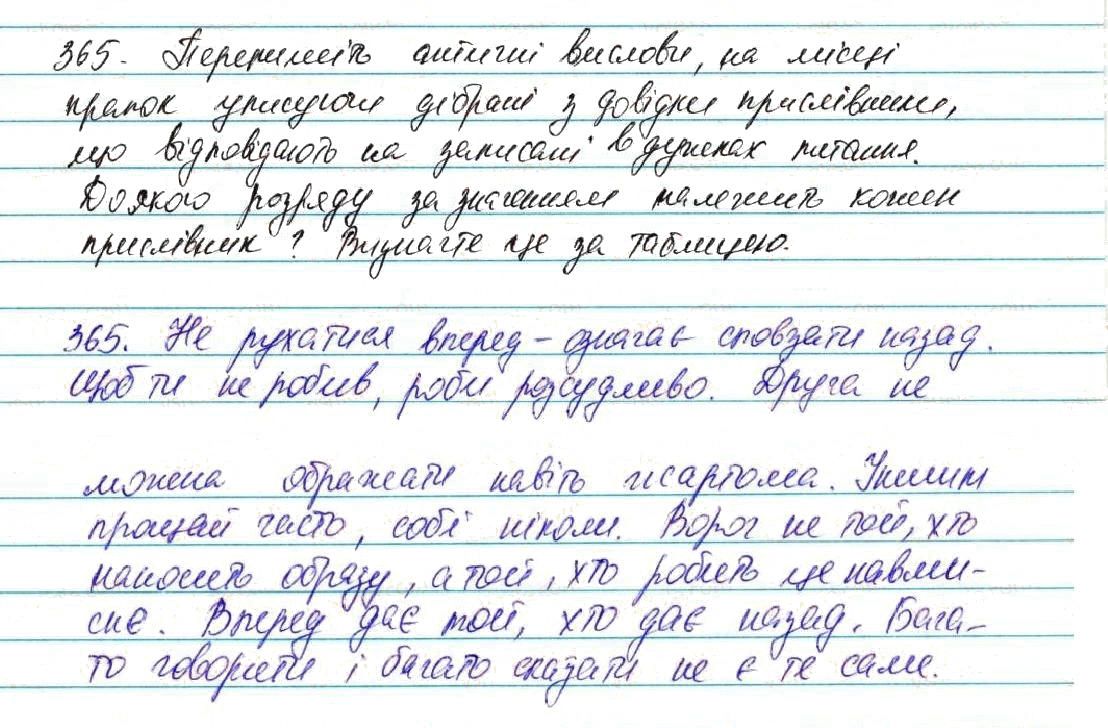 365. Перепишіть античні вислови, на місці
крапок уписуючи дібрані з довідки прислівники,
що відповідають на записані в дужках питання.
До якого розряду за значенням належить кожен
прислівник? Визначте це за таблицею.
365. Не рухатися вперед – означає сповзати назад.
Щоб ти не робив, роби розсудливо. Друга не
можна ображати навіть жартома. Іншим
прощай часто, собі ніколи. Ворог не той, хто
наносить образу, а той, хто робить це навми-
сне. Вперед дає той, хто дає назад. Бага-
то говорити і багато сказати не є те саме.